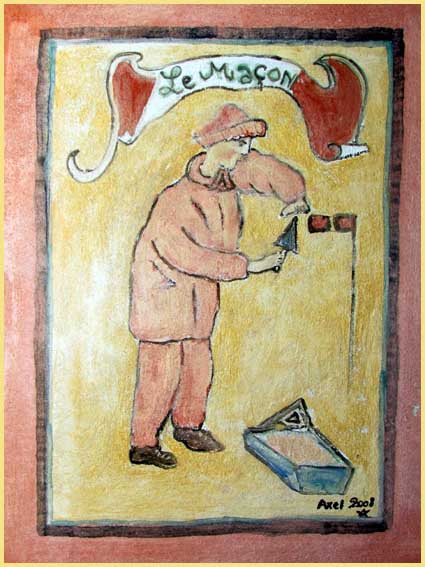 Le MAÇON
Axel 2008